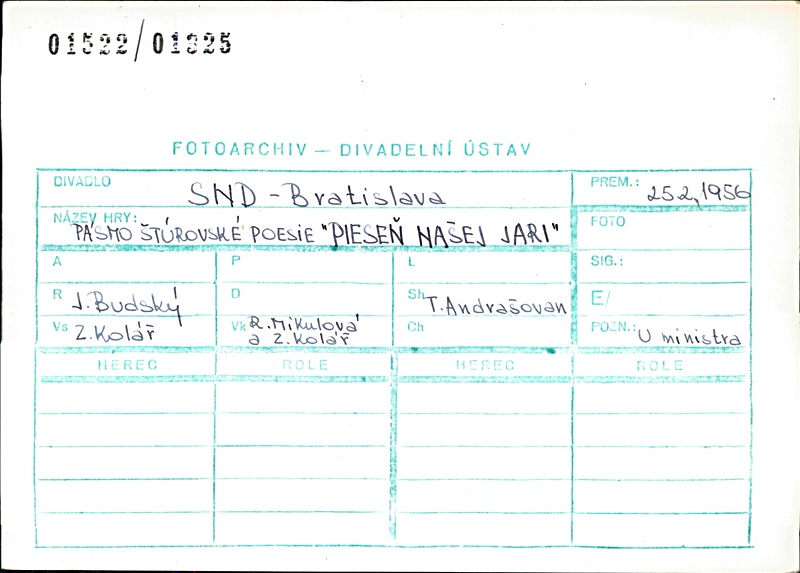 01522/01825
FOTOARCHIV — DIVADELNÍ ÚSTAV
DIVADLO SND - Bratislava PREM.: 25 2, 1956
NÁZEV HRY: PÁSMO ŠTÚROVSKÉ POESIE "PIESEŇ NAŠEJ JARI" FOTO
A P L SIG.:
R J. Budský D Sh T. Andrašovan E/
Vs Z. Kolář Vk R. Mikulová Ch POZN.: U ministra
a Z. Kolář
HEREC ROLE HEREC ROLE